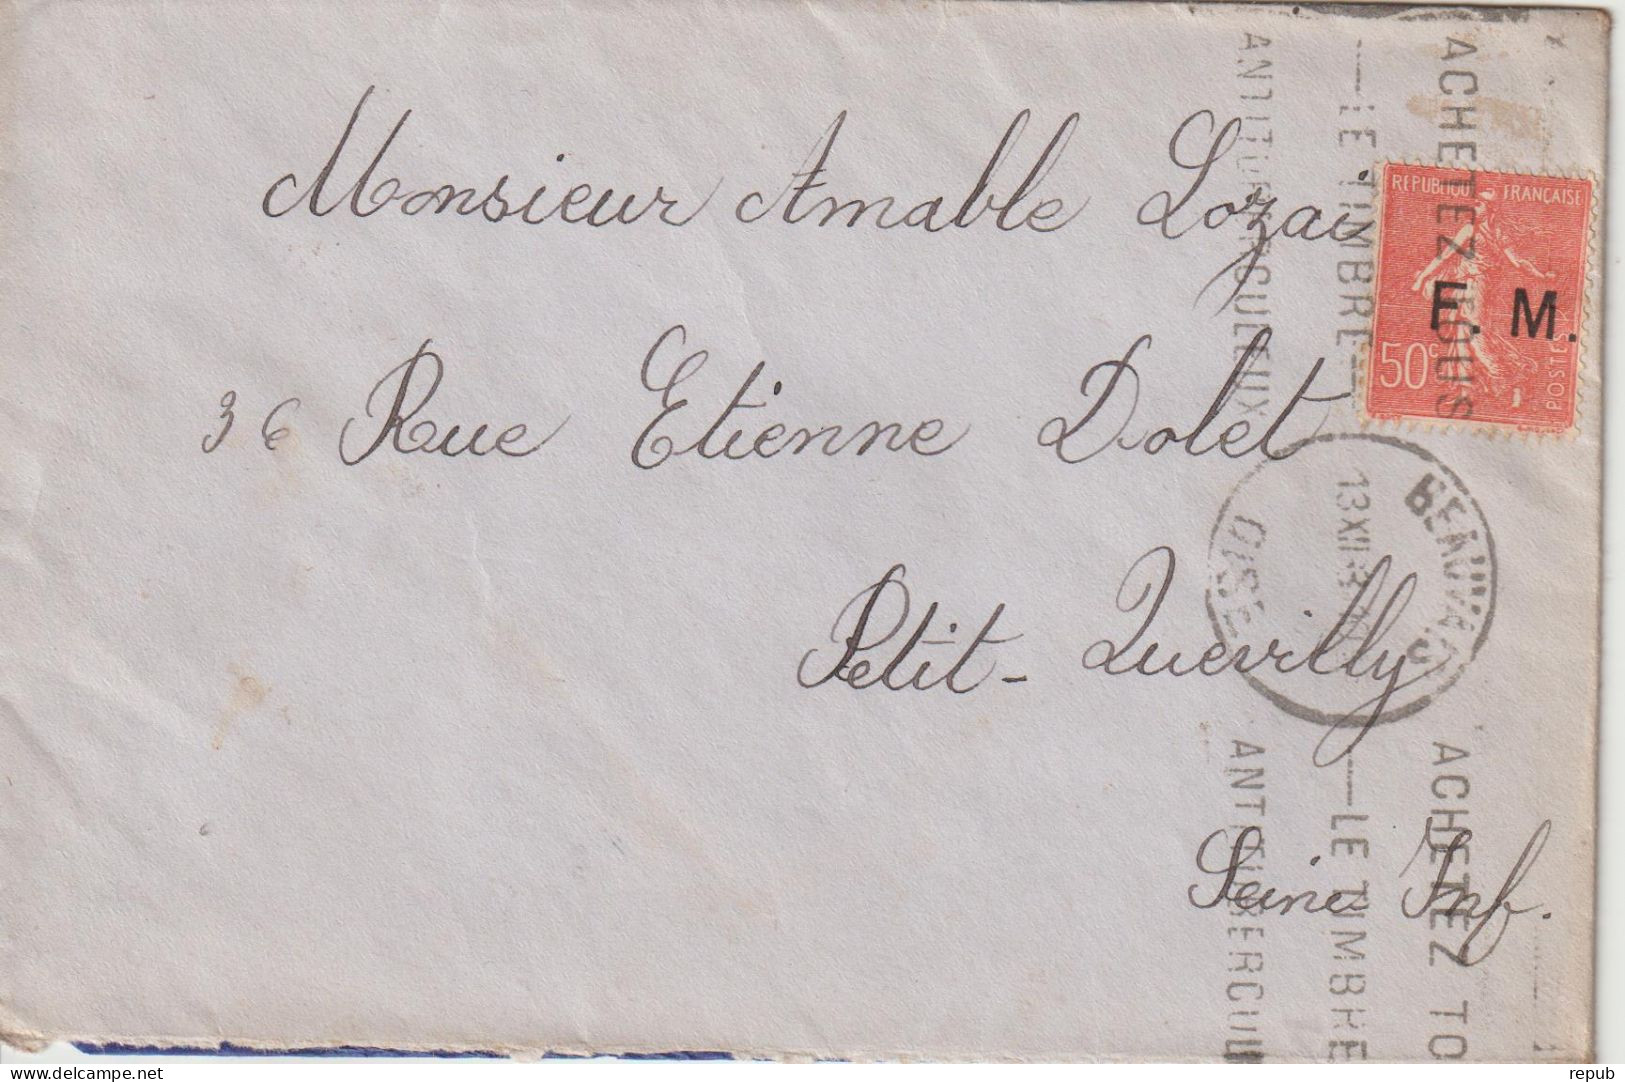 Monsieur Amable
36 Rue Etienne Dolet
Petit-Quevilly
Seine Inf.
REPUBLIQUE FRANÇAISE
F. M.
50c
POSTES
ACHETEZ TOUS
—LE TIMBRE—
ANTITUBERCULEUX
BEAUVAIS
13 XII
OISE
ACHETEZ TO
—LE TIMBRE
ANTITUBERCUL
delcampe.net
repub